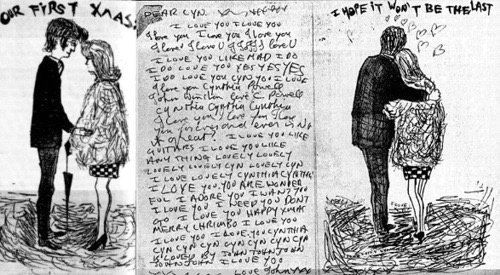 OUR FIRST XMAS.
DEAR CYN.
I LOVE YOU I LOVE YOU
I love you I love you I love you
I love U
I LOVE YOU LIKE MAD I DO
I DO LOVE YOU YES YES YES
I DO LOVE YOU CYN YOU I LOVE
I love you Cynthia Powell
John Winston love C. Powell
Cynthia Cynthia Cynthia
I love you I love you I love
You forever and ever is n't
it great? I LOVE YOU LIKE
GUITARS I LOVE YOU LIKE
ANY THING LOVELY LOVELY
LOVELY LOVELY CYN LOVELY CYN
I LOVE LOVELY CYNTHIA CYNTHIA
I LOVE YOU. YOU ARE WONDER
FUL I ADORE YOU I WANT YOU
I LOVE YOU I NEED YOU DON'T
GO I LOVE YOU HAPPY XMAS
MERRY CHRIMBO I LOVE YOU
I LOVE YOU I LOVE YOU CYNTHIA
CYN CYN CYN CYN CYN CYN CYN
IS LOVED BY JOHN JOHN JOHN
JOHN JOHN I LOVE YOU
LOVE JOHN
I HOPE IT WON'T BE THE LAST